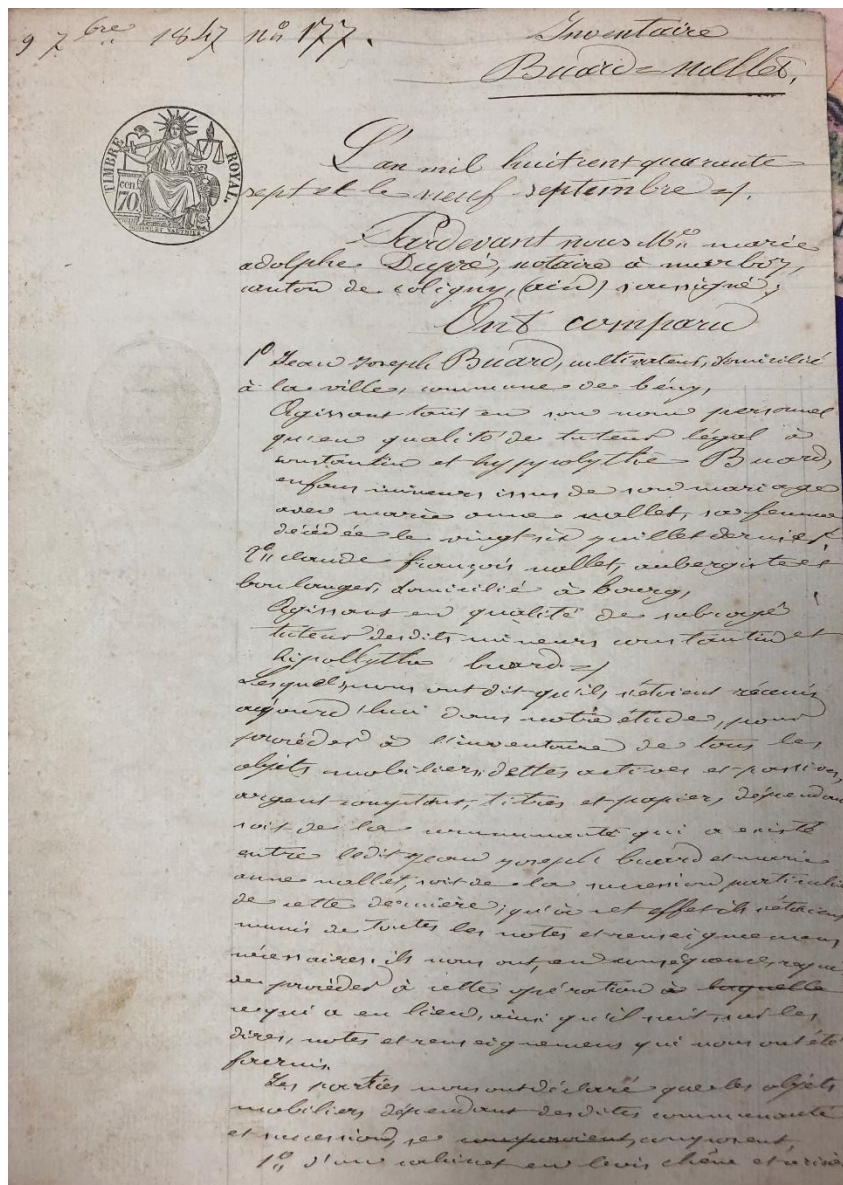 9 7bre 1847 no 177.
Inventaire
Buard = nallet.
TIMBRE ROYAL.
cen
70
L'an mil huit cent quarante
sept et le neuf septembre =/.
Pardevant nous Me marie
adolphe Dupré, notaire à marboz,
canton de coligny, (ain) soussigné;
Ont comparu
1o Jean Joseph Buard, cultivateur, domicilié
à la ville, commune de bény,
Agissant tant en son nom personnel
qu'en qualité de tuteur légal à
constantin et hyppolythe Buard,
enfans mineurs issus de son mariage
avec marie anne nallet, sa femme
décédée le vingt six juillet dernier
2o claude françois nallet, aubergiste et
boulanger, domicilié à bourg,
Agissant en qualité de subrogé
tuteur desdits mineurs constantin et
hipollythe buard =/
Lesquels nous ont dit qu'ils s'étoient réunis
aujourd'hui dans notre étude, pour
procéder à l'inventaire de tous les
objets mobiliers, dettes actives et passives,
argent comptant, titres et papiers, dépendan
soit de la communauté qui a existé
entre ledit jean joseph buard et marie
anne nallet, soit de la succession particuliè
de cette dernière; qu'à cet effet ils s'étoient
munis de toutes les notes et renseignemens
nécessaires; ils nous ont, en conséquence, requi
de procéder à cette opération à laquelle
ce qui a eu lieu, ainsi qu'il suit, sur les
dires, notes et renseignemens qui nous ont été
fournis.
Les parties nous ont déclaré que les objets
mobiliers dépendant desdites communauté
et succession, se composoient, composent
1o d'un cabinet en bois chêne et cerisie